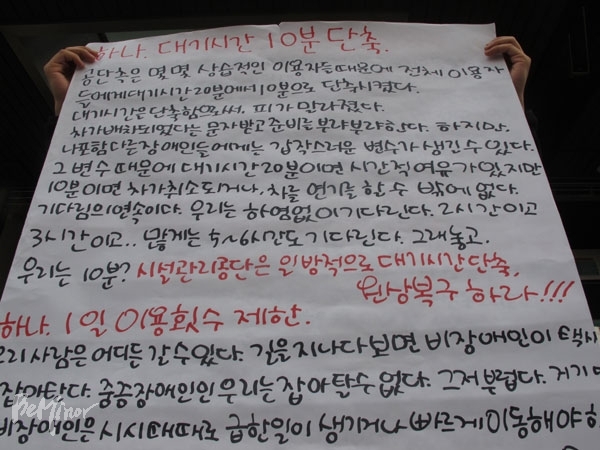 하나. 대기시간 10분 단축.
공단측은 몇몇 상습적인 이용자들때문에 전체 이용자
들에게 대기시간 20분에서 10분으로 단축시켰다.
대기시간은 단축함으로써, 피가 말라졌다.
차가배차되었다는 문자받고 준비는 부랴부랴한다. 하지만,
나포함 다른장애인들에게는 갑작스러운 변수가 생긴수 있다.
그 변수 때문에 대기시간 20분이면 시간적 여유가 있지만
10분이면 차가취소되거나, 차를 연기를 할 수 밖에 없다.
기다림의 연속이다. 우리는 하염없이 기다린다. 2시간이고
3시간이고.. 많게는 5~6시간도 기다린다. 그래놓고.
우리는 10분? 시설관리공단은 일방적으로 대기시간 단축,
원상복구 하라!!!
하나. 1일 이용횟수 제한.
사람은 어디든 갈수있다. 길을 지나다보면 비장애인이 택시
잡아탄다. 중증장애인인 우리는 잡아 탈수 없다. 그저 부럽다. 거기
비장애인은 시시때때로 급한일이 생기거나 빠르게 이동해야
TheMinor